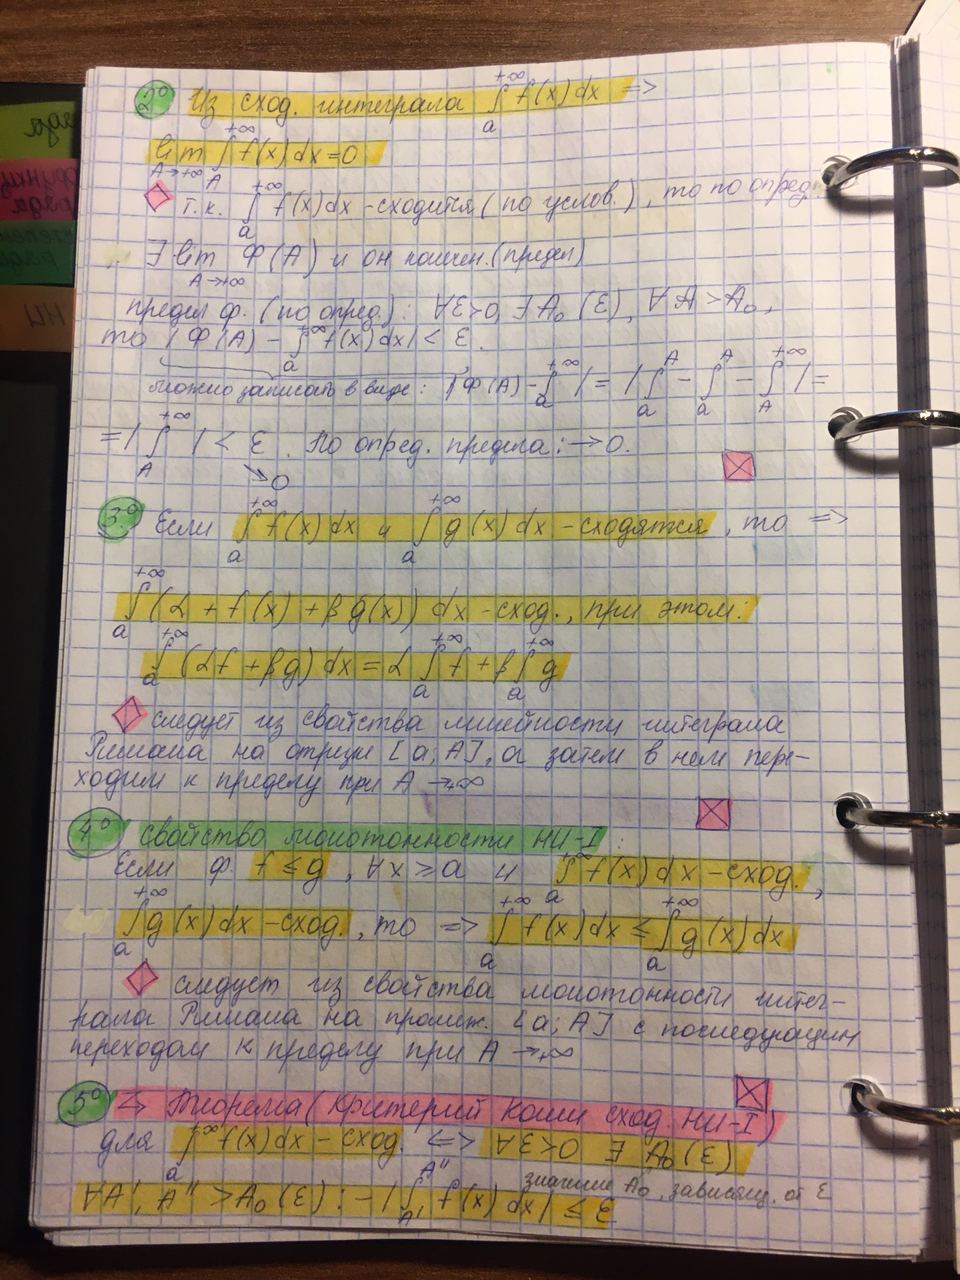 2° Из сход. интеграла ∫_a^{+∞} f(x)dx =>
lim_{A→+∞} ∫_A^{+∞} f(x)dx=0
т.к. ∫_a^{+∞} f(x)dx - сходится (по услов.), то по опред.
∃ lim_{A→+∞} Ф(A) и он конечен. (предел)
предел ф. (по опред.): ∀ε>0, ∃A₀(ε), ∀A>A₀,
то |Ф(A) - ∫_a^{+∞} f(x)dx| < ε.
можно записать в виде: |Ф(A) - ∫_a^{+∞}| = |∫_a^A - ∫_a^A - ∫_A^{+∞}| =
= |∫_A^{+∞}| < ε. По опред. предела: → 0.
→0
3° Если ∫_a^{+∞} f(x)dx и ∫_a^{+∞} g(x)dx - сходятся, то =>
∫_a^{+∞} (α + f(x) + βg(x)) dx - сход., при этом:
∫_a^{+∞} (αf + βg)dx = α ∫_a^{+∞} f + β ∫_a^{+∞} g
следует из свойства линейности интеграла
Римана на отрезке [a; A], а затем в нем пере-
ходим к пределу при A → +∞
4° свойство монотонности НИ-I:
Если ф. f ≤ g, ∀x ≥ a и ∫_a^{+∞} f(x)dx - сход.,
∫_a^{+∞} g(x)dx - сход., то => ∫_a^{+∞} f(x)dx ≤ ∫_a^{+∞} g(x)dx
следует из свойства монотонности интег-
рала Римана на промеж. [a; A] с последующим
переходом к пределу при A → +∞
5° Теорема (критерий Коши сход. НИ-I)
для ∫_a^{+∞} f(x)dx - сход. <=> ∀ε>0 ∃ A₀(ε)
значение A₀, зависящ. от ε
∀A', A'' > A₀(ε): - |∫_{A'}^{A''} f(x)dx| ≤ ε
ряда
НИ